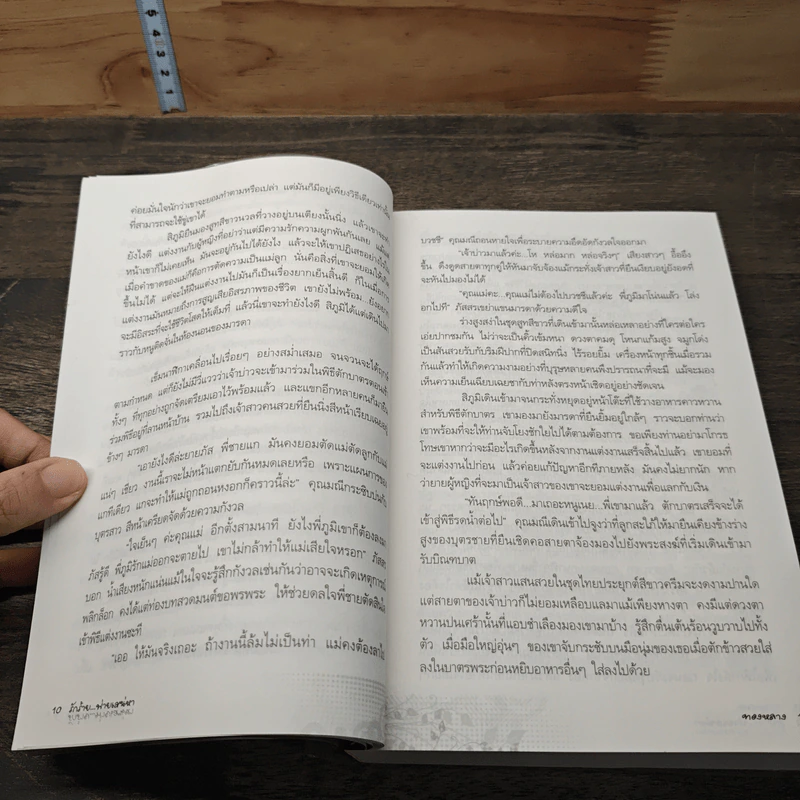 5 4 3 2 1
ค่อยมั่นใจนักว่าเขาจะยอมทำตามหรือเปล่า แต่มันก็มีอยู่เพียงวิธีเดียวเท่านั้น
ที่สามารถจะใช้ขู่เขาได้
สิภูมิยืนมองสูทสีขาวนวลที่วางอยู่บนเตียงนั้นนิ่ง แล้วเขาจะทำ
ยังไงดี แต่งงานกับผู้หญิงที่อย่าว่าแต่มีความรักความผูกพันกันเลย แม้แต่
หน้าเขาก็ไม่เคยเห็น มันจะอยู่กันไปได้ยังไง แล้วจะให้เขาปฏิเสธอย่างไร
เมื่อคำขาดของแม่ก็คือการตัดความเป็นแม่ลูก นั่นคือสิ่งที่เขาจะยอมให้เกิด
ขึ้นไม่ได้ แต่จะให้ฝืนแต่งงานไปมันก็เป็นเรื่องยากเย็นสิ้นดี ก็ในเมื่อการ
แต่งงานมันหมายถึงการสูญเสียอิสรภาพของชีวิต เขายังไม่พร้อม...ยังอยาก
จะมีอิสระที่จะใช้ชีวิตโสดให้เต็มที่ แล้วนี่เขาจะทำยังไงดี สิภูมิได้แต่เดินไปมา
ราวกับหนูติดจั่นในห้องนอนของมารดา
เข็มนาฬิกาเคลื่อนไปเรื่อยๆ อย่างสม่ำเสมอ จนจวนจะได้ฤกษ์
ตามกำหนด แต่ก็ยังไม่มีวี่แววว่าเจ้าบ่าวจะเข้ามาร่วมในพิธีตักบาตรตอนเช้า
ทั้งๆ ที่ทุกอย่างถูกจัดเตรียมเอาไว้พร้อมแล้ว และแขกอีกหลายคนก็มายืน
ร่วมพิธีอยู่ที่ลานหน้าบ้าน รวมไปถึงเจ้าสาวคนสวยที่ยืนนิ่งสีหน้าเรียบเฉยอยู่
ข้างๆ มารดา
"เอายังไงดีล่ะยายภัส พี่ชายแก มันคงยอมตัดแม่ตัดลูกกับแม่
แน่ๆ เชียว งานนี้เราจะไม่หน้าแตกยับกันหมดเลยหรือ เพราะแผนการของ
แกทีเดียว แกจะทำให้แม่ถูกถอนหงอกก็คราวนี้ล่ะ" คุณมณีกระซิบบ่นกับ
บุตรสาว สีหน้าเครียดจัดด้วยความกังวล
"ใจเย็นๆ ค่ะคุณแม่ อีกตั้งสามนาที ยังไงพี่ภูมิเขาก็ต้องลงมา
ภัสรู้ดี พี่ภูมิรักแม่ออกจะตายไป เขาไม่กล้าทำให้แม่เสียใจหรอก" ภัสสร
บอก น้ำเสียงหนักแน่นแม้ในใจจะรู้สึกกังวลเช่นกันว่าอาจจะเกิดเหตุการณ์
พลิกล็อก คงได้แต่ท่องบทสวดมนต์ขอพรพระ ให้ช่วยดลใจพี่ชายตัดสินใจ
เข้าพิธีแต่งงานซะที
"เออ ให้มันจริงเถอะ ถ้างานนี้ล้มไม่เป็นท่า แม่คงต้องลาไป
10
บวชชี" คุณมณีถอนหายใจเพื่อระบายความอึดอัดกังวลใจออกมา
"เจ้าบ่าวมาแล้วค่ะ...โห หล่อมาก หล่อจริงๆ" เสียงสาวๆ อื้ออึง
ขึ้น ดึงดูดสายตาทุกคู่ให้หันมาจับจ้องแม้กระทั่งเจ้าสาวที่ยืนเงียบอยู่ยังอดที่
จะหันไปมองไม่ได้
"คุณแม่คะ...คุณแม่ไม่ต้องไปบวชชีแล้วค่ะ พี่ภูมิมาโน่นแล้ว โล่ง
อกไปที" ภัสสรเขย่าแขนมารดาด้วยความดีใจ
ร่างสูงสง่าในชุดสูทสีขาวที่เดินเข้ามานั้นหล่อเหลาอย่างที่ใครต่อใคร
เอ่ยปากชมกัน ไม่ว่าจะเป็นคิ้วเข้มหนา ดวงตาคมดุ โหนกแก้มสูง จมูกโด่ง
เป็นสันสวยรับกับริมฝีปากที่ปิดสนิทนิ่ง ไร้รอยยิ้ม เครื่องหน้าทุกชิ้นเมื่อรวม
กันแล้วทำให้เกิดความงามอย่างที่บุรุษหลายคนพึงปรารถนาที่จะมี แม้จะมอง
เห็นความเย็นเฉียบเฉยชากับท่าหลังตรงหน้าเชิดอยู่อย่างชัดเจน
สิภูมิเดินเข้ามาจนกระทั่งหยุดอยู่หน้าโต๊ะที่ใช้วางอาหารคาวหวาน
สำหรับพิธีตักบาตร เขามองมายังมารดาที่ยืนยิ้มอยู่ใกล้ๆ ราวจะบอกท่านว่า
เขาพร้อมที่จะให้ท่านจับโยงชักใยไปได้ตามต้องการ ขอเพียงท่านอย่ามาโกรธ
โทษเขาหากว่าจะมีอะไรเกิดขึ้นหลังจากงานแต่งงานเสร็จสิ้นไปแล้ว เขายอมที่
จะแต่งงานไปก่อน แล้วค่อยแก้ปัญหาอีกทีภายหลัง มันคงไม่ยากนัก หาก
ว่ายายผู้หญิงที่จะมาเป็นเจ้าสาวของเขาจะยอมแต่งงานเพื่อแลกกับเงิน
"ทันฤกษ์พอดี...มาเถอะหนูเนย...พี่เขามาแล้ว ตักบาตรเสร็จจะได้
เข้าสู่พิธีรดน้ำต่อไป" คุณมณีเดินเข้าไปจูงว่าที่ลูกสะใภ้ให้มายืนเคียงข้างร่าง
สูงของบุตรชายที่ยืนเชิดคอสายตาจ้องมองไปยังพระสงฆ์ที่เริ่มเดินเข้ามา
รับบิณฑบาต
แม้เจ้าสาวแสนสวยในชุดไทยประยุกต์สีขาวครีมจะงดงามปานใด
แต่สายตาของเจ้าบ่าวก็ไม่ยอมเหลือบแลมาแม้เพียงหางตา คงมีแต่ดวงตา
หวานปนเศร้านั้นที่แอบชำเลืองมองเขามาบ้าง รู้สึกตื่นเต้นร้อนวูบวาบไปทั้ง
ตัว เมื่อมือใหญ่อุ่นๆ ของเขาจับประคับบนมือนุ่มของเธอเมื่อตักข้าวสวยใส่
ลงในบาตรพระก่อนหยิบอาหารอื่นๆ ใส่ลงไปด้วย
ทองหลาง